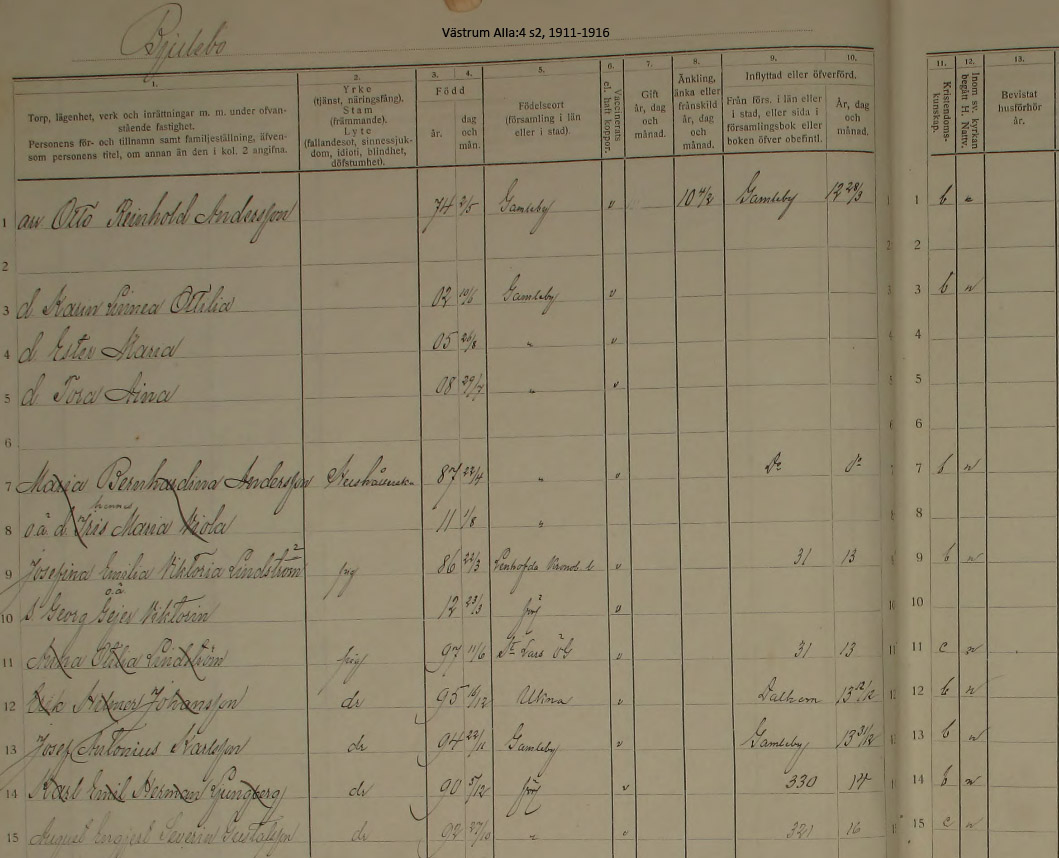 Västrum Alla:4 s2, 1911-1916
1. 2. 3. 4. 5. 6. 7. 8. 9. 10. 11. 12. 13.
Torp, lägenhet, verk och inrättningar m. m. under ofvanstående fastighet.
Personens för- och tillnamn samt familjeställning, äfvensom personens titel, om annan än den i kol. 2 angifna.
Yrke
(tjänst, näringsfång).
Stam
(främmande).
Lyte
(fallandesot, sinnessjukdom, idioti, blindhet, döfstumhet).
Född
år.
dag och mån.
Födelseort
(församling i län eller i stad).
Vaccinerats el. haft koppor.
Gift år, dag och månad.
Änkling, änka eller frånskild år, dag och månad.
Inflyttad eller öfverförd.
Från förs. i län eller i stad, eller sida i församlingsbok eller boken öfver obefintl.
År, dag och månad.
Kristendomskunskap.
Inom sv. kyrkan begått H. Nattv.
Bevistat husförhör år.
1 arr Otto Reinhold Andersson 74 2/5 Gamleby v 10 4/2 Gamleby 12 28/3 1 b
2 2
3 d Karin Linnea Ottilia 02 10/6 Gamleby v 3 b n
4 d Ester Maria 05 26/8 " v 4
5 d Tora Aina 08 29/7 " v 5
6 6
7 Maria Bernhardina Andersson 87 22/4 " v Do do 7 b n
8 o.ä d Iris Maria Viola 11 1/8 " 8
9 Josefina Emilia Viktoria Lindström pig 86 22/3 v 31 13 9 b n
10 s Georg Gejer Viktorin o.ä 12 23/3 förs v 10
11 Anna Otilia Lindström pig 97 11/6 St Lars ÖG v 31 13 11 c n
12 Erik Helmer Johansson dr 95 Ukna v Dalhem 12 b n
13 Josef Antonius Karlsson dr 94 Gamleby v Gamleby 13 31/12 13 b n
14 Karl Emil Herman Ljungberg dr 90 5/12 förs v 330 14 14 b n
15 August Severin Gustafsson dr 92 27/10 " v 321 16 15 c n